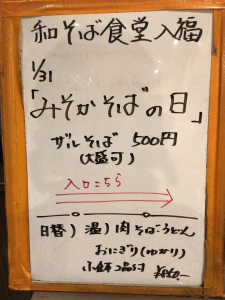 和そば食堂入福
1/31
「みそかそばの日」
ザルそば 500円
(大盛可)
入口こちら
日替) 温) 肉そば・うどん
おにぎり(ゆかり)
小鉢2品付